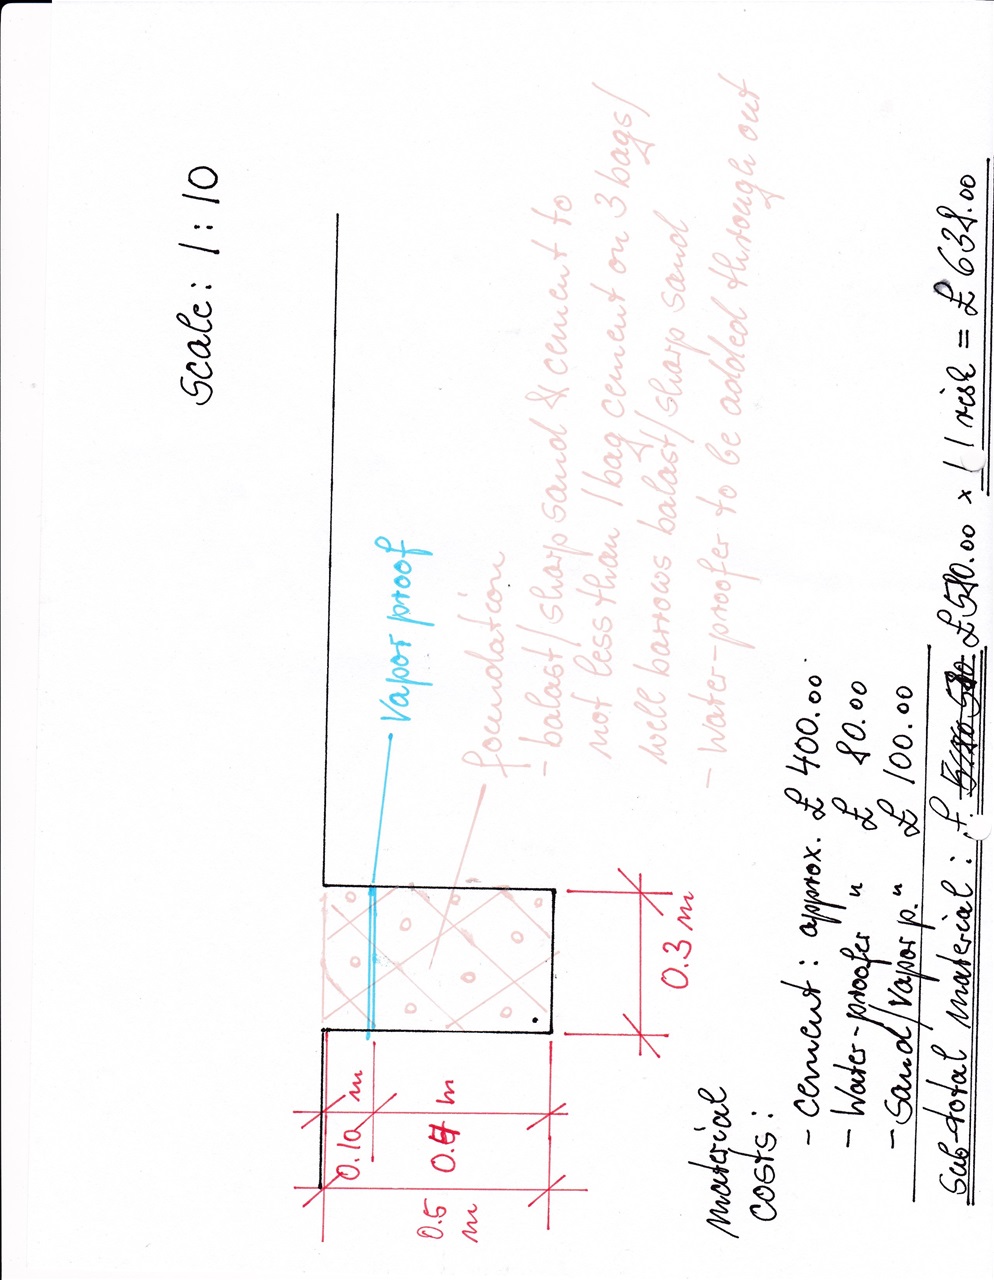 Scale: 1:10
Vapor proof
foundation
- balast/sharp sand & cement to
not less than 1 bag cement on 3 bags/
well barrows balast/sharp sand
- Water-proofer to be added through out
0.10 m
0.4 m
0.5 m
0.3 m
material
costs:
- cement: approx. £ 400.00
- Water-proofer " £ 80.00
- Sand/vapor p. " £ 100.00
Sub-total material: £ £580.00 x 1 1 risk = £ 638.00